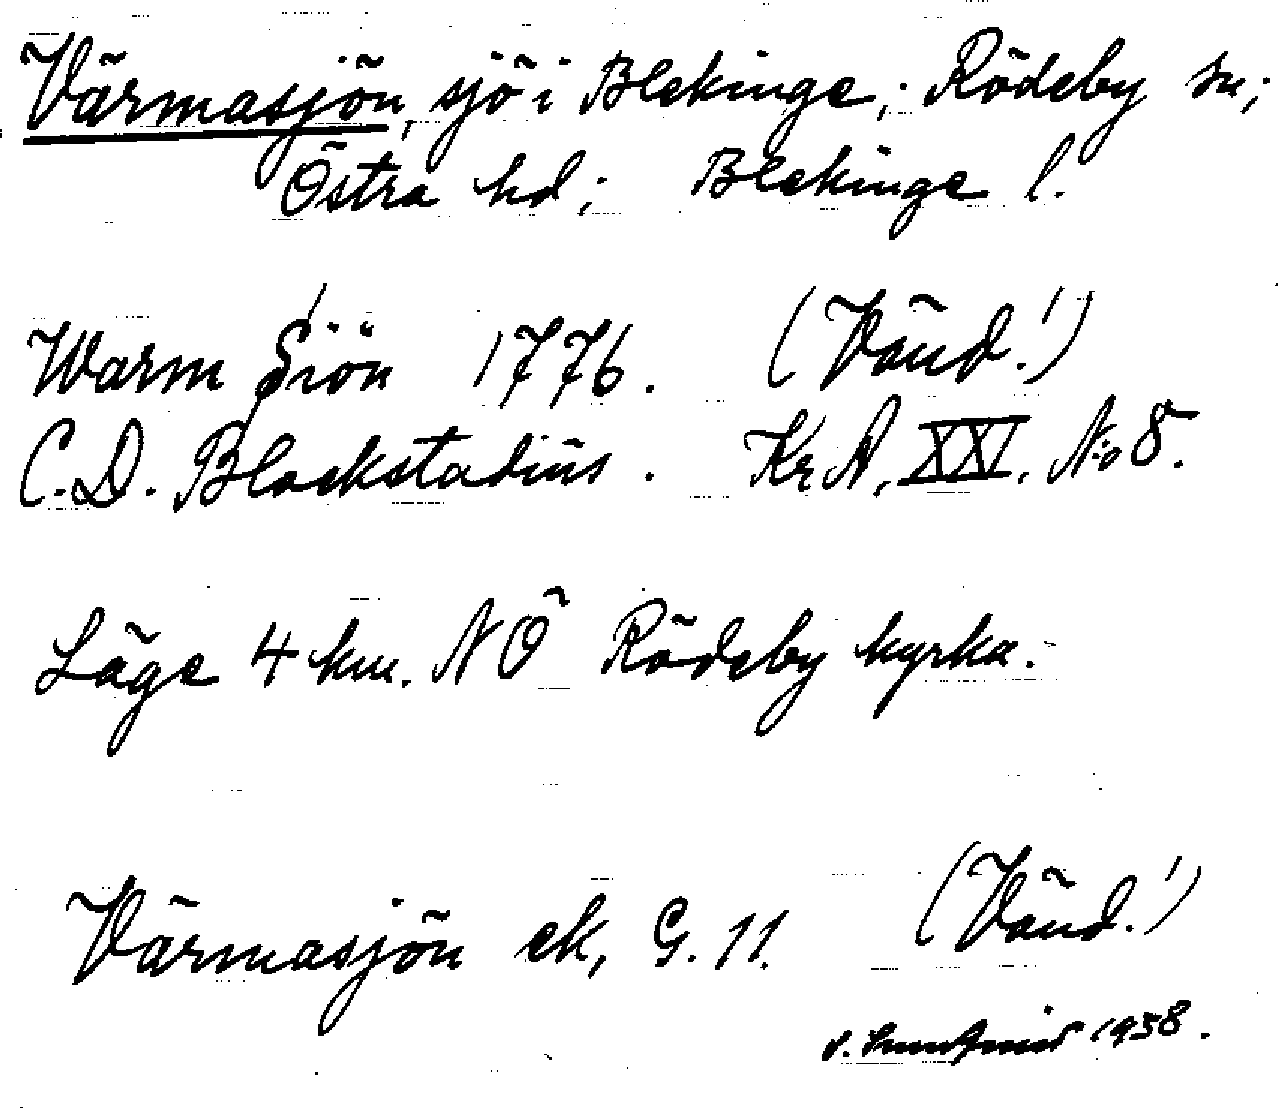 Värmasjön, sjö i Blekinge; Rödeby sn;
Östra hd; Blekinge l.
Warm Siön 1776. (Vänd!)
C.D. Blackstadius. Kr A, XXI. N:o 8.
Läge 4 km. NÖ Rödeby kyrka.
Värmasjön ek, G. 11. (Vänd!)
1938.